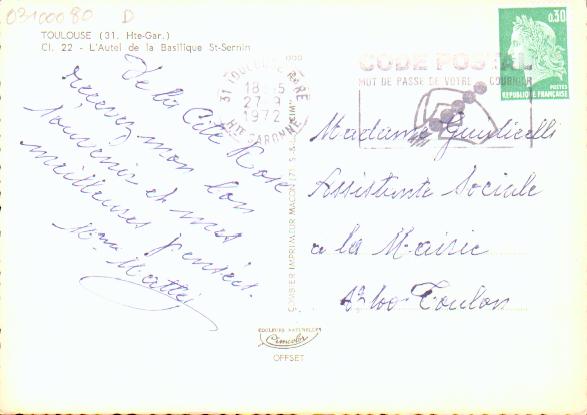 03100080 D
TOULOUSE (31. Hte-Gar.)
Cl. 22 - L'Autel de la Basilique St-Sernin
De la Cité Rose
recevez mon bon
souvenir et mes
meilleures pensées.
Mme Mattei
31 TOULOUSE GARE
18H15
27-9
1972
Hte GARONNE
CODE POSTAL
MOT DE PASSE DE VOTRE COURRIER
0,30
POSTES
REPUBLIQUE FRANÇAISE
Madame
Assistante Sociale
à la Mairie
83100 Toulon
COMBIER IMPRIMEUR MACON (71. S.-&-L.) "CIM"
COULEURS NATURELLES
Cimcolor
OFFSET